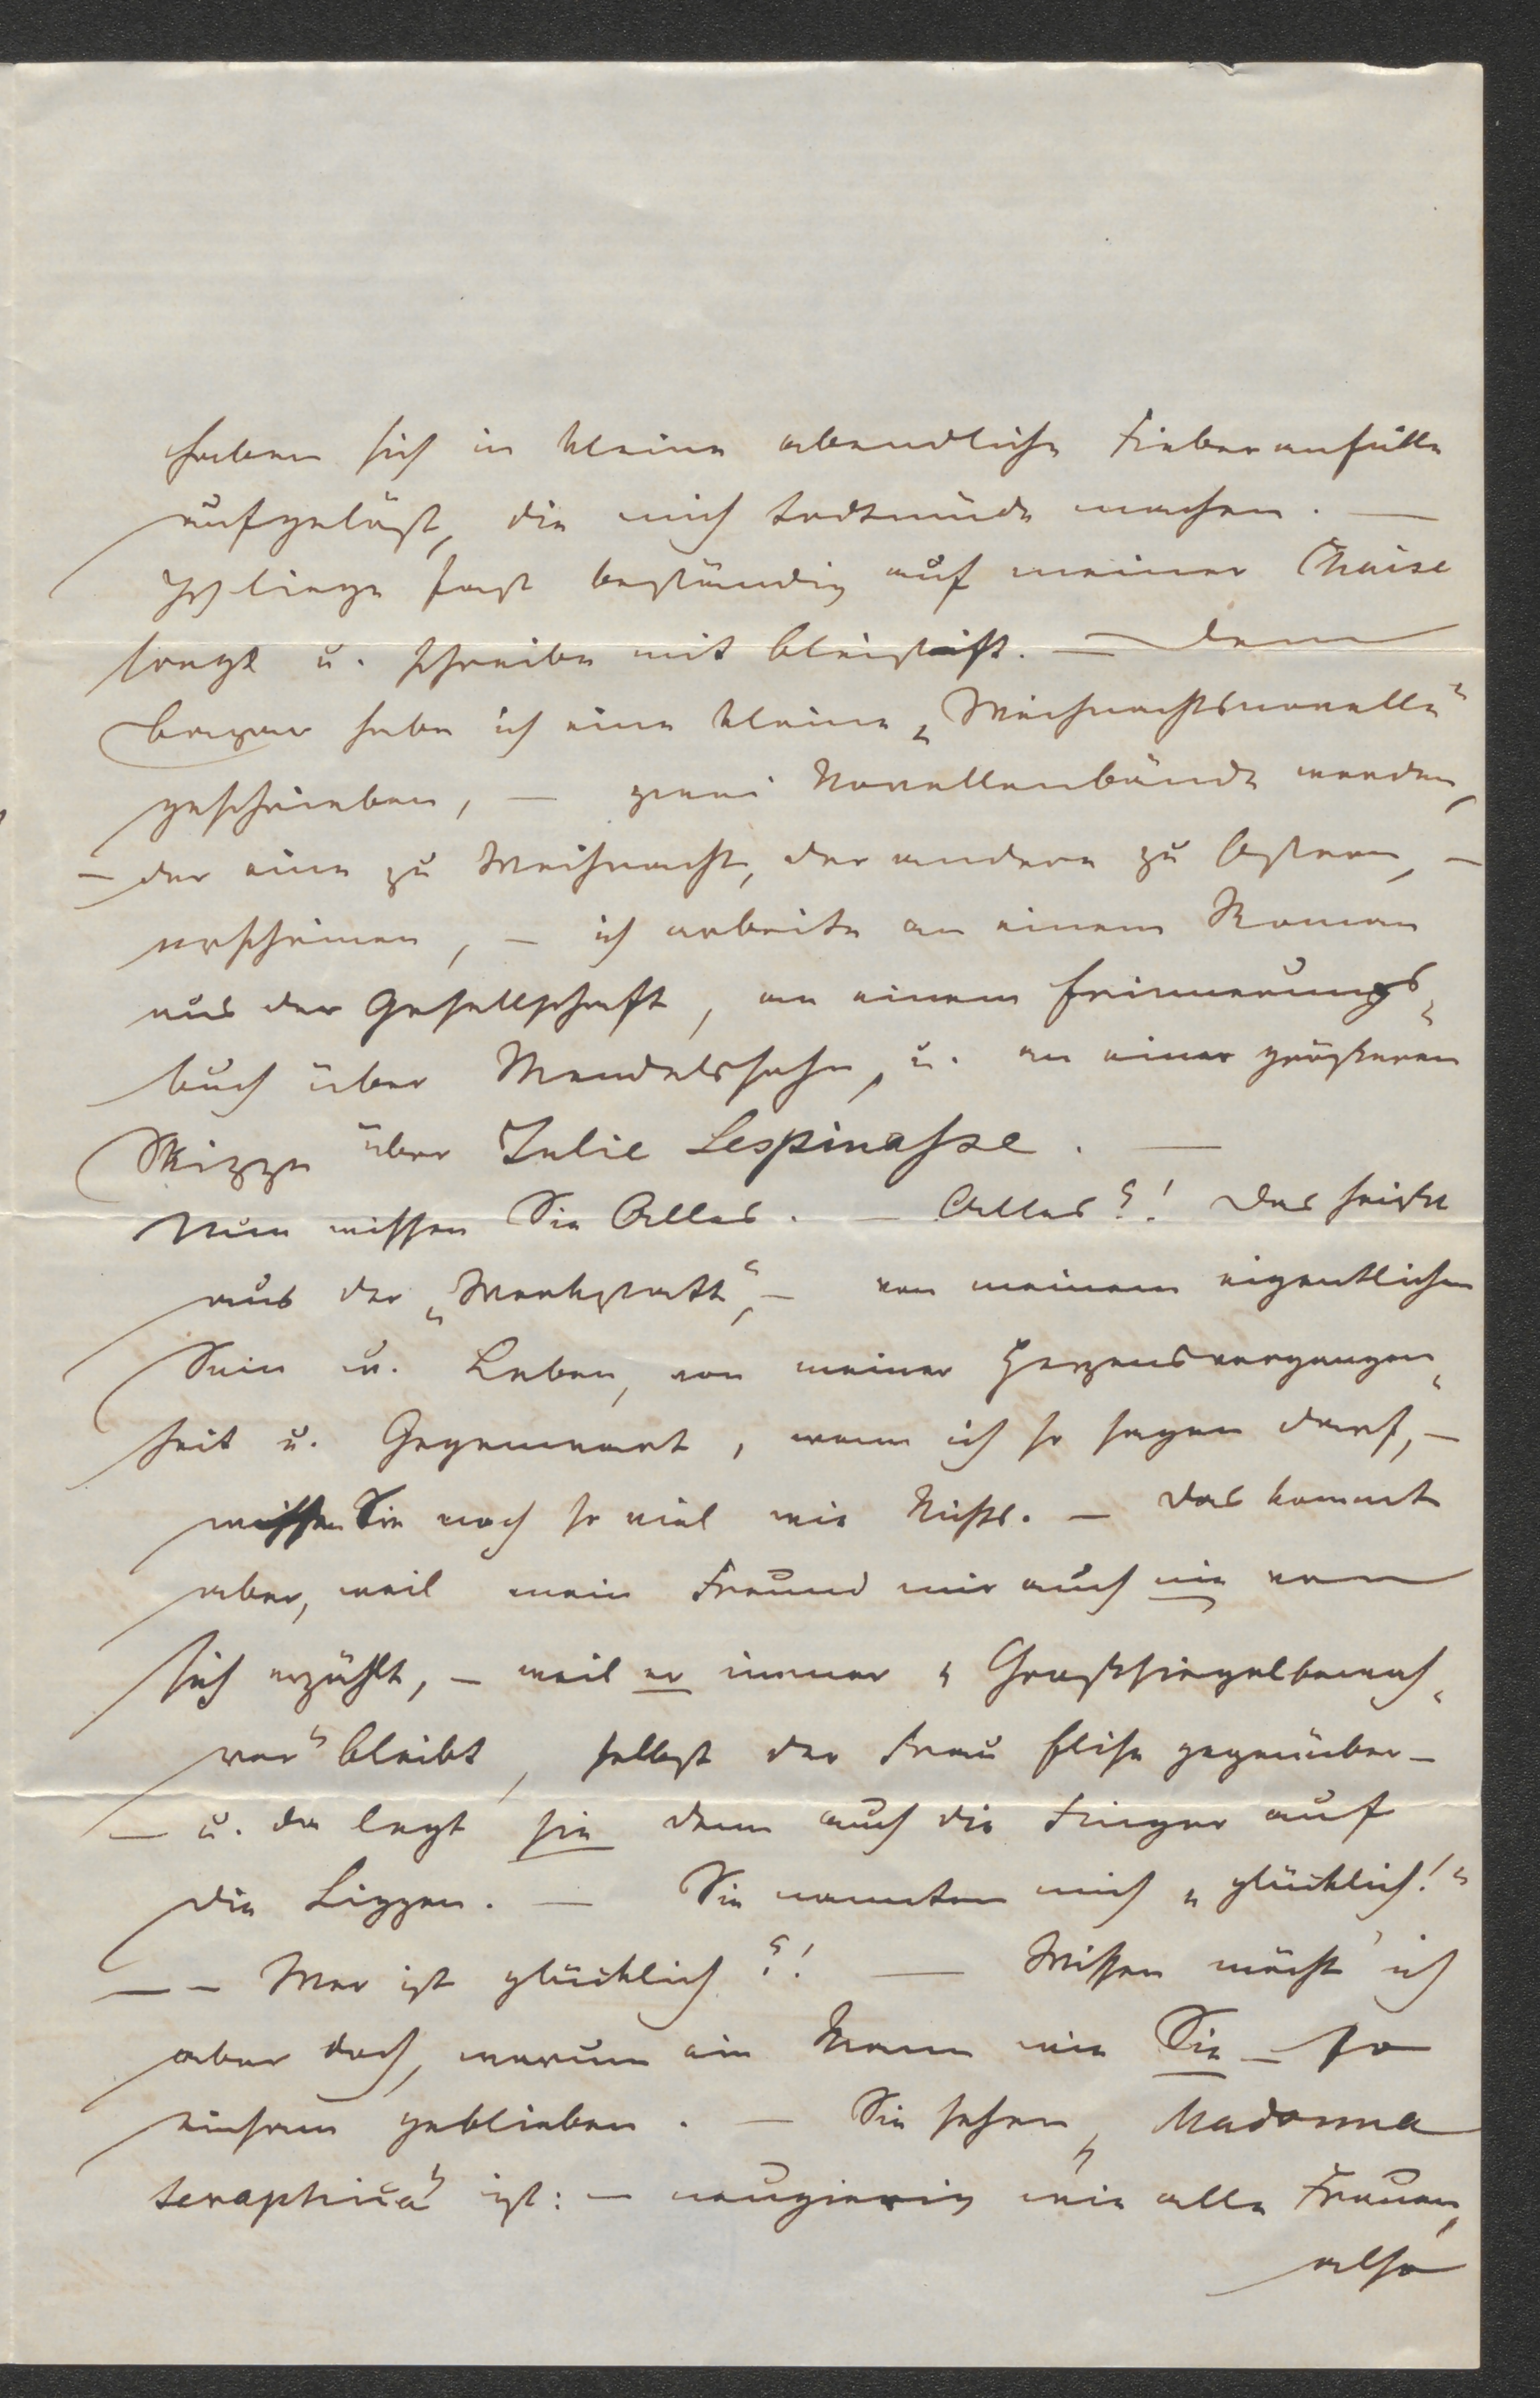 haben sich in kleine abendliche Fieberanfälle
aufgelöst, die mich todtmüde machen. —
Ich liege fast beständig auf meiner Chaise
longe u. schreibe mit Bleistift. — Dem
Bazar habe ich eine kleine „Weihnachtsnovelle“
geschrieben, — zwei Novellenbände werden,
— der eine zu Weihnacht, der andere zu Ostern, —
erscheinen, — ich arbeite an einem Roman
aus der Gesellschaft, an einem Erinnerungs-
buch über Mendelssohn, u. an einer größeren
Skizze über Julie Lespinasse. —
Nun wissen Sie Alles. — Alles?! Das heißt
aus der „Werkstatt“, — von meinem eigentlichen
Sein u. Leben, von meiner Herzensvergangen-
heit u. Gegenwart, wenn ich so sagen darf, —
wissen Sie noch so viel wie Nichts. — Das kommt
aber, weil mein Freund mir auch nie von
sich erzählt, — weil er immer „Großsiegelbewah-
rer“ bleibt, selbst der Frau Elise gegenüber —
— u. da legt sie denn auch die Finger auf
die Lippen. — Sie nannten mich „glücklich!“
— — Wer ist glücklich?! — Wissen möcht' ich
aber doch, warum ein Mann wie Sie — so
einsam geblieben. — Sie sehen, „Madonna
seraphica“ ist: — neugierig wie alle Frauen,
also